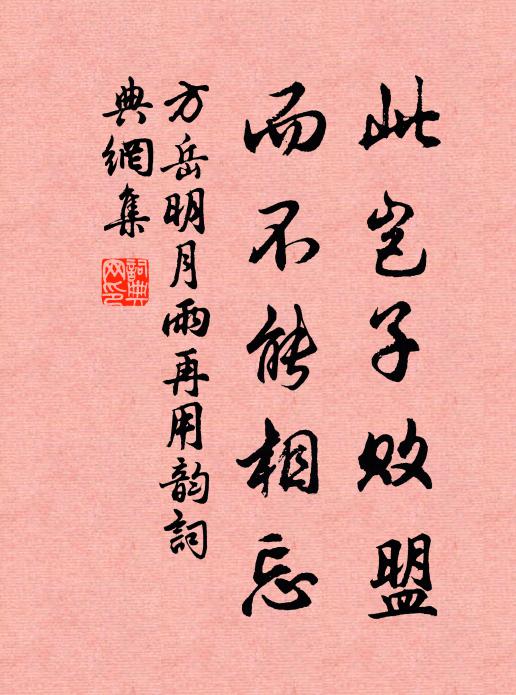 此岂子败盟
而不能相忘
方岳明月雨再用韵詞
典網集
詞典
网印